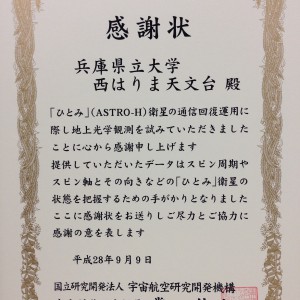 感謝状
兵庫県立大学
西はりま天文台 殿
「ひとみ」(ASTRO-H)衛星の通信回復運用に
際し地上光学観測を試みていただきました
ことに心から感謝申し上げます
提供していただいたデータはスピン周期や
スピン軸とその向きなどの「ひとみ」衛星の
状態を把握するための手がかりとなりました
ここに感謝状をお送りしご尽力とご協力に
感謝の意を表します
平成28年9月9日
国立研究開発法人 宇宙航空研究開発機構